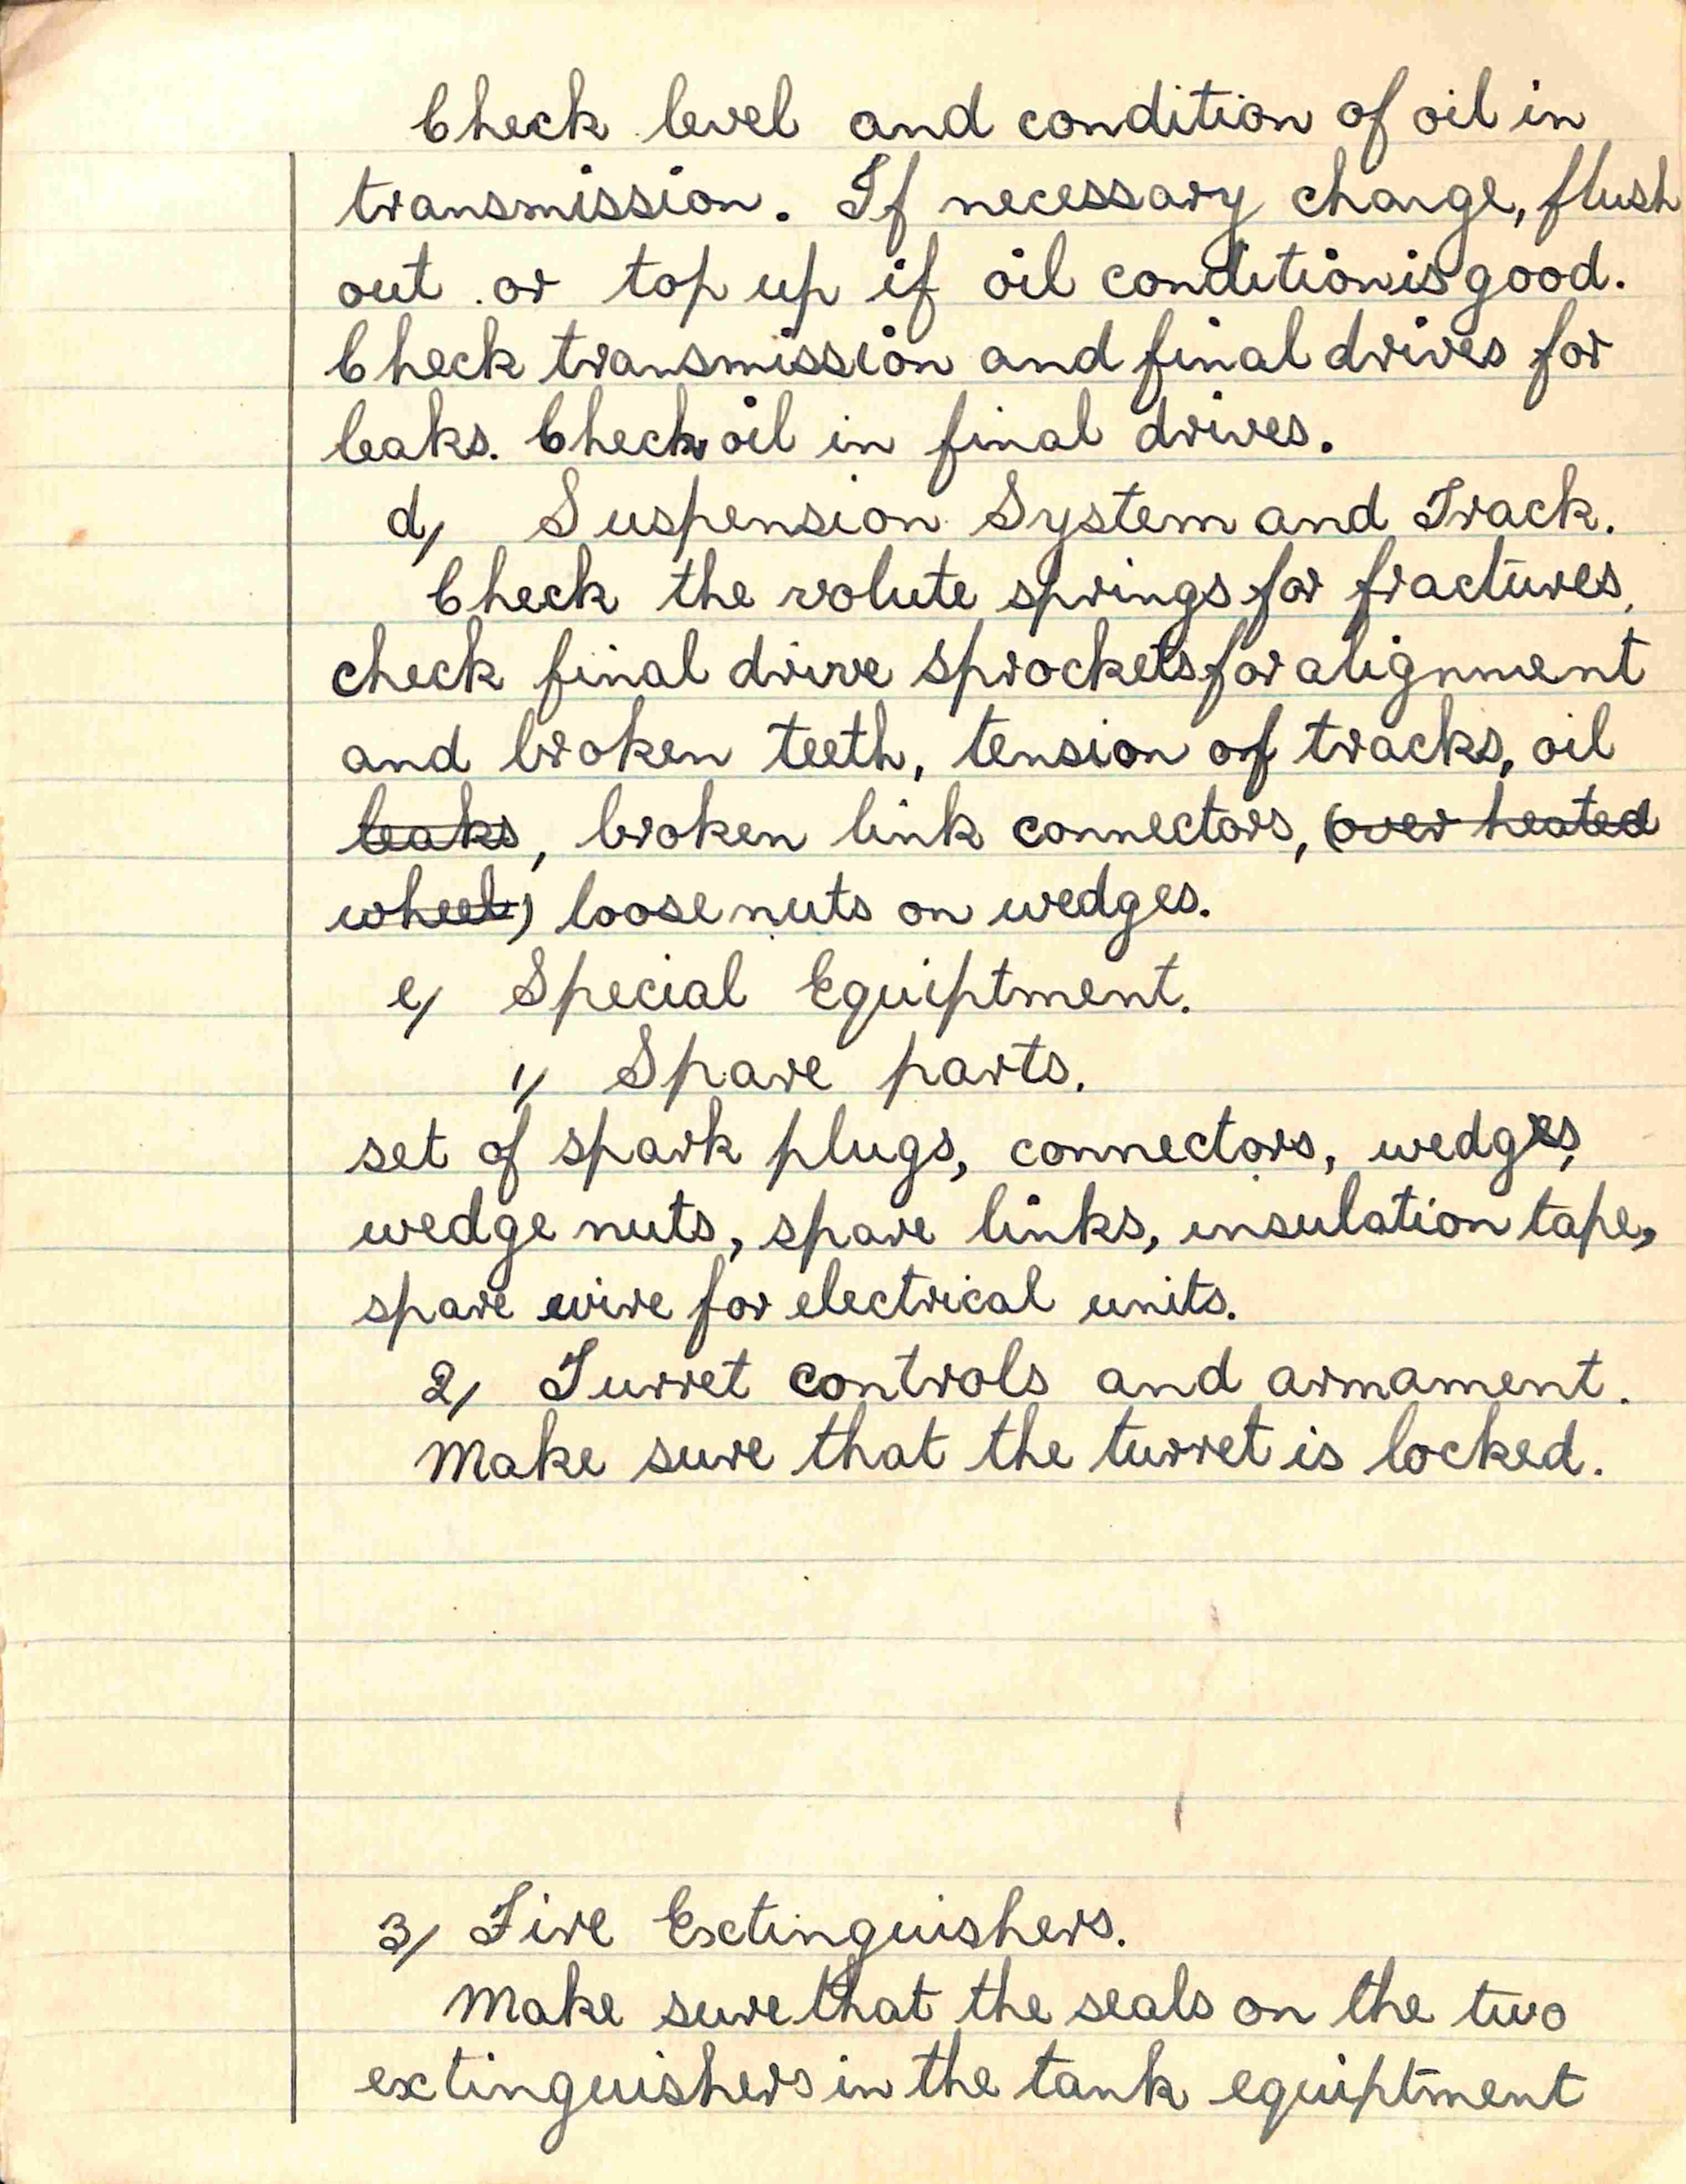 Check level and condition of oil in
transmission. If necessary change, flush
out or top up if oil condition is good.
Check transmission and final drives for
leaks. Check oil in final drives.
d, Suspension System and Track.
Check the volute springs for fractures,
check final drive sprockets for alignment
and broken teeth, tension of tracks, oil
leaks, broken link connectors, (over heated
wheels) loose nuts on wedges.
e, Special Equiptment.
1, Spare parts.
set of spark plugs, connectors, wedges,
wedge nuts, spare links, insulation tape,
spare wire for electrical units.
2, Turret controls and armament.
Make sure that the turret is locked.
3, Fire Extinguishers.
Make sure that the seals on the two
extinguishers in the tank equiptment